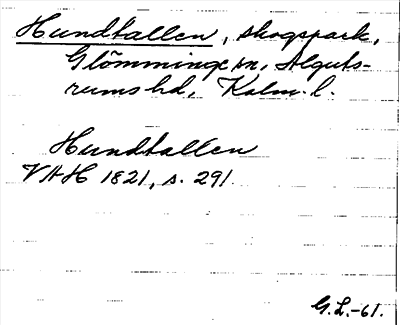 Hundtallen, skogspark,
Glömminge sn, Alguts-
rums hd, Kalm. l.
Hundtallen
VAH 1821, s. 291.
G.L.-61.